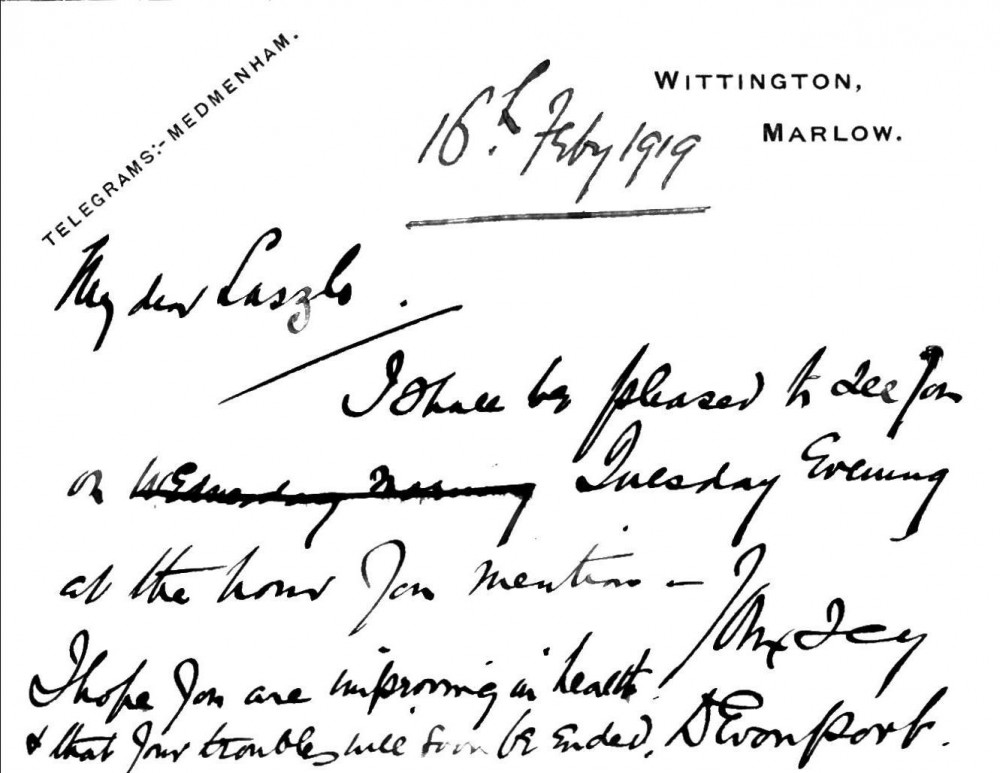 TELEGRAMS:- MEDMENHAM.
WITTINGTON,
MARLOW.
16th Feby 1919
My dear Laszlo.
I shall be pleased to see you
on Wednesday morning Tuesday Evening
at the hour you mention –
I hope you are improving in health
& that your troubles will soon be ended.
Devonport.